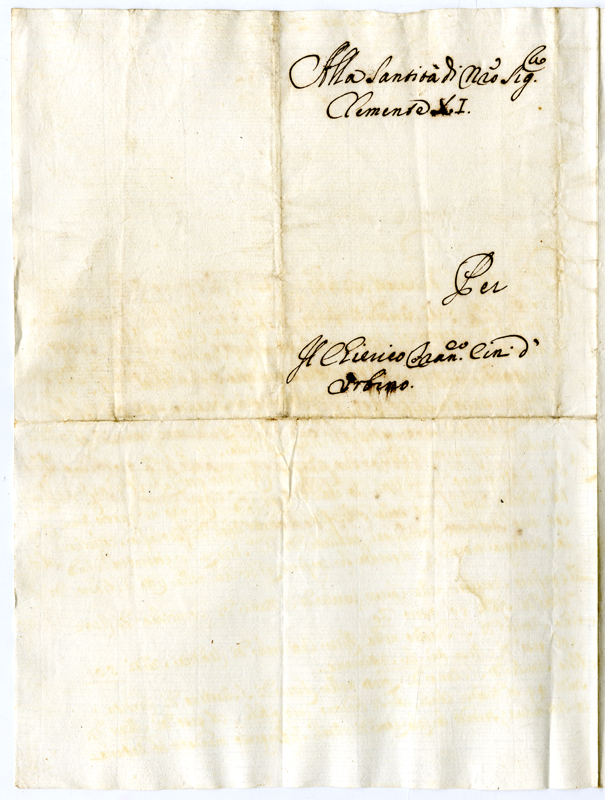 Alla Santità di Nro Sig.re
Clemente XI.
Per
Il Chierico Fran.co Cini d'
Urbino.